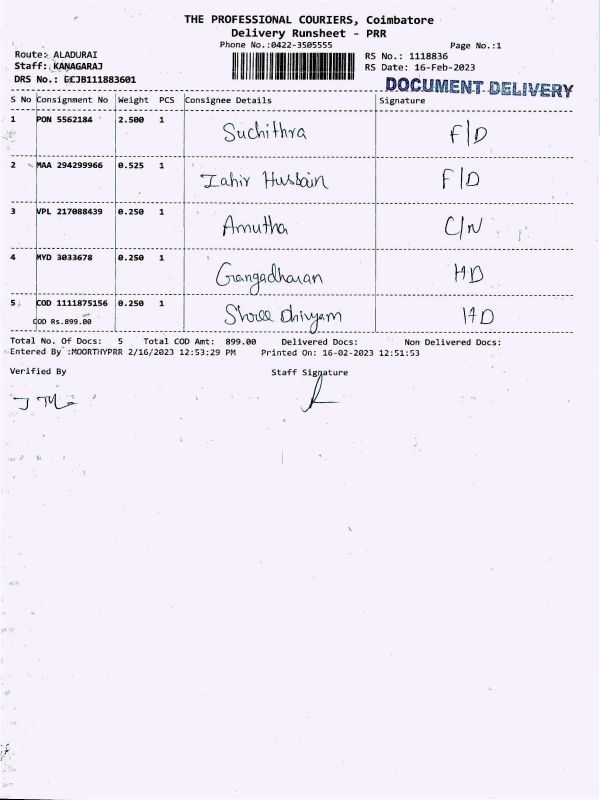 THE PROFESSIONAL COURIERS, Coimbatore
Delivery Runsheet - PRR
Phone No.:0422-3505555 Page No.:1
Route: ALADURAI RS No.: 1118836
Staff: KANAGARAJ RS Date: 16-Feb-2023
DRS No.: ECJB111883601 DOCUMENT DELIVERY
S No Consignment No Weight PCS Consignee Details Signature
1 PON 5562184 2.500 1 Suchithra F/D
2 MAA 294299966 0.525 1 Zahir Hussain F/D
3 VPL 217088439 0.250 1 Amutha C/N
4 MYD 3033678 0.250 1 Gangadharan HD
5 COD 1111875156 0.250 1 Shree Dhivyam HD
COD Rs.899.00
Total No. Of Docs: 5 Total COD Amt: 899.00 Delivered Docs: Non Delivered Docs:
Entered By :MOORTHYPRR 2/16/2023 12:53:29 PM Printed On: 16-02-2023 12:51:53
Verified By Staff Signature